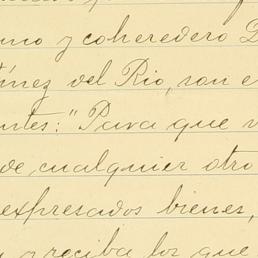 uno y coheredero D
tínez del Rio, son e
ntes: "Para que v
de cualquier otro
expresados bienes,
y reciba los que